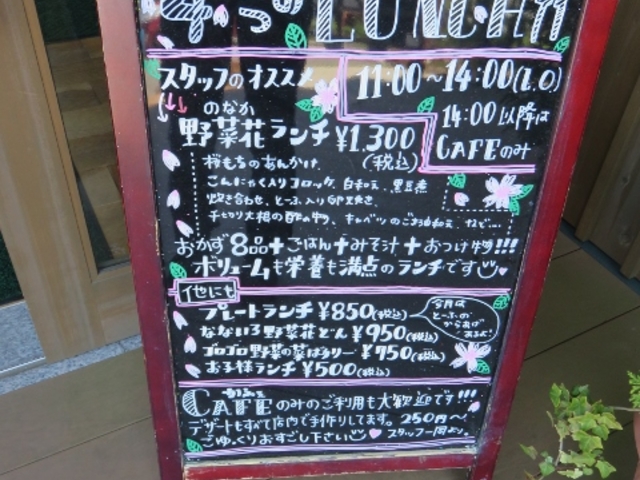 4つのLUNCH!!
スタッフのオススメ
11:00~14:00(L.O)
14:00以降は
CAFEのみ
のなか
野菜花ランチ ¥1.300
(税込)
桜もちのあんかけ、
こんにゃく入りコロッケ、白和え、黒豆煮
炊き合わせ、とーふ入り卵焼き、
千切り大根の酢の物、キャベツのごま油和え、などで…
おかず8品+ごはん+みそ汁+おつけ物!!!
ボリュームも栄養も満点のランチです
他にも
プレートランチ ¥850(税込)
なないろ野菜花どん ¥950(税込)
ゴロゴロ野菜の カリー ¥750(税込)
お子様ランチ ¥500(税込)
今月は
とーふの
からあげ
あるよ!
CAFEのみのご利用も大歓迎です!!!
デザートもすべて店内で手作りしてます。250円~
ごゆっくりおすごし下さい スタッフ一同より。